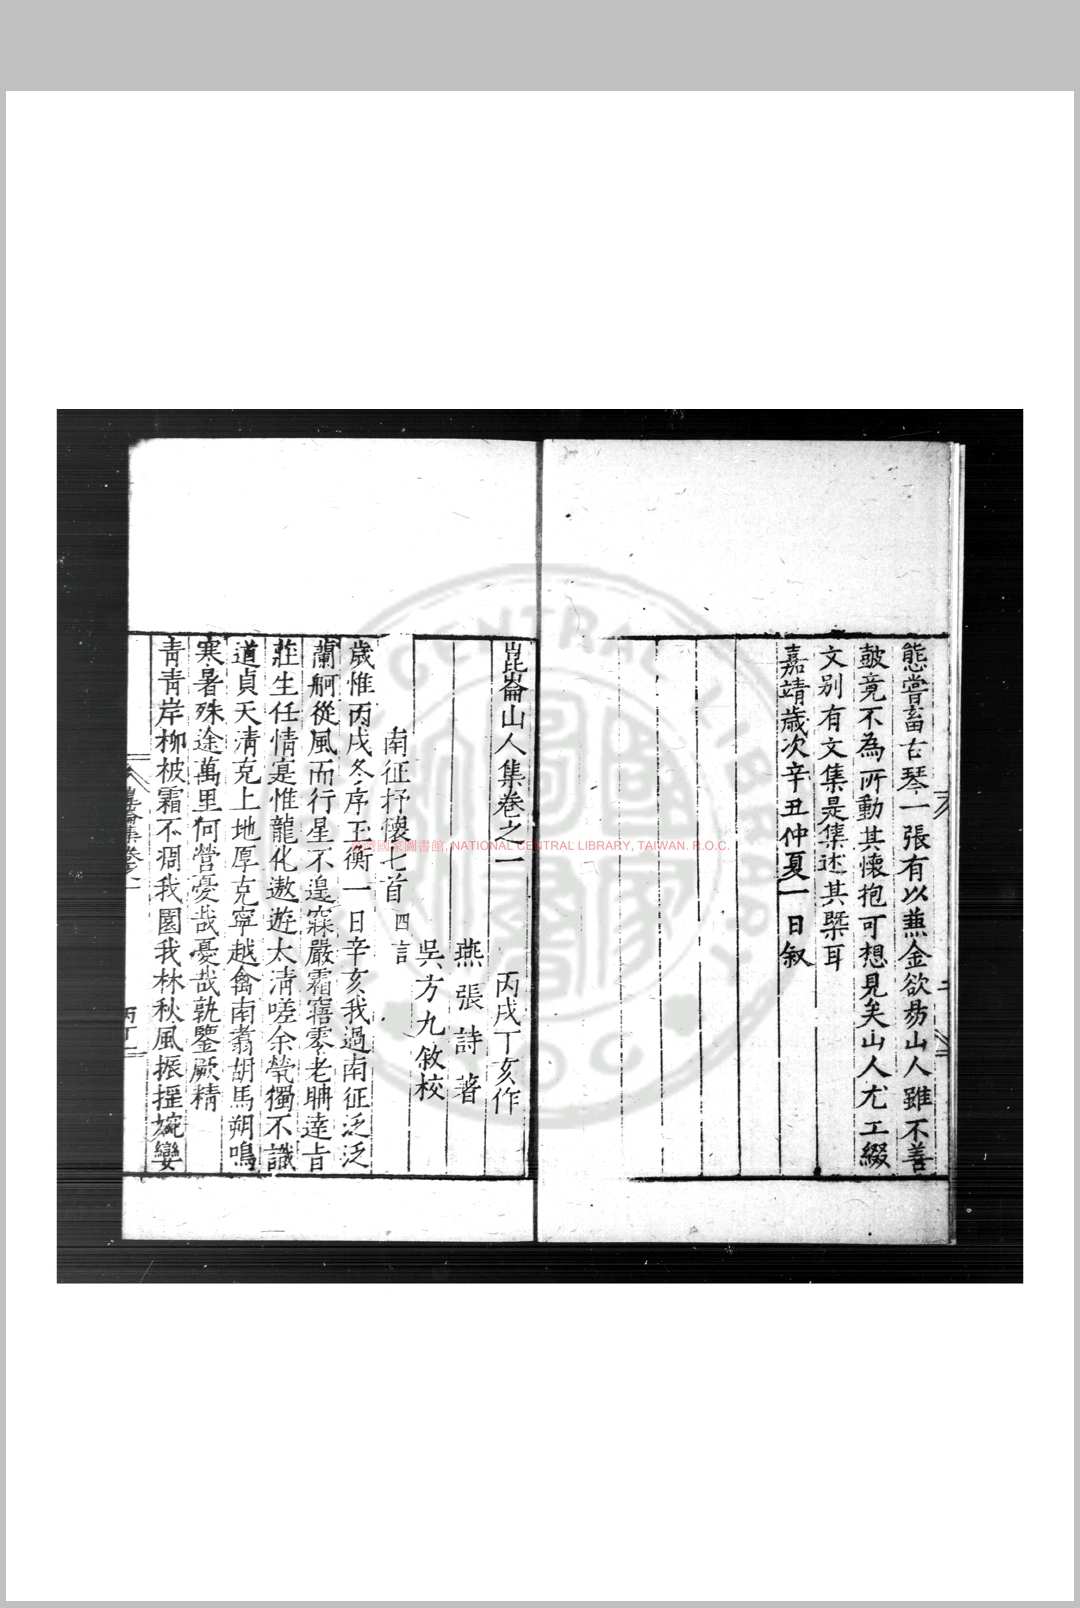 態嘗畜古琴一張有以蕪金欲易山人雖不善
皷竟不為所動其懷抱可想見矣山人尤工綴
文别有文集是集述其槩耳
嘉靖歲次辛丑仲夏一日叙
二
崑崙山人集卷之一
丙戌丁亥作
燕張詩著
吳方九敘校
南征抒懷七首四言
歲惟丙戌冬序玉衡一日辛亥我過南征泛泛
蘭舸從風而行星不遑寐嚴霜窹零老聃達旨
莊生任情寔惟龍化遨遊太清嗟余煢獨不識
道貞天清克上地厚克寧越禽南翥胡馬朔鳴
寒暑殊途萬里何營憂哉憂哉孰鑒厥精
青青岸柳被霜不凋我園我林秋風振搖婉孌
崑崙集卷之一
丙丁
國家圖書館, NATIONAL CENTRAL LIBRARY, TAIWAN. R.O.C.